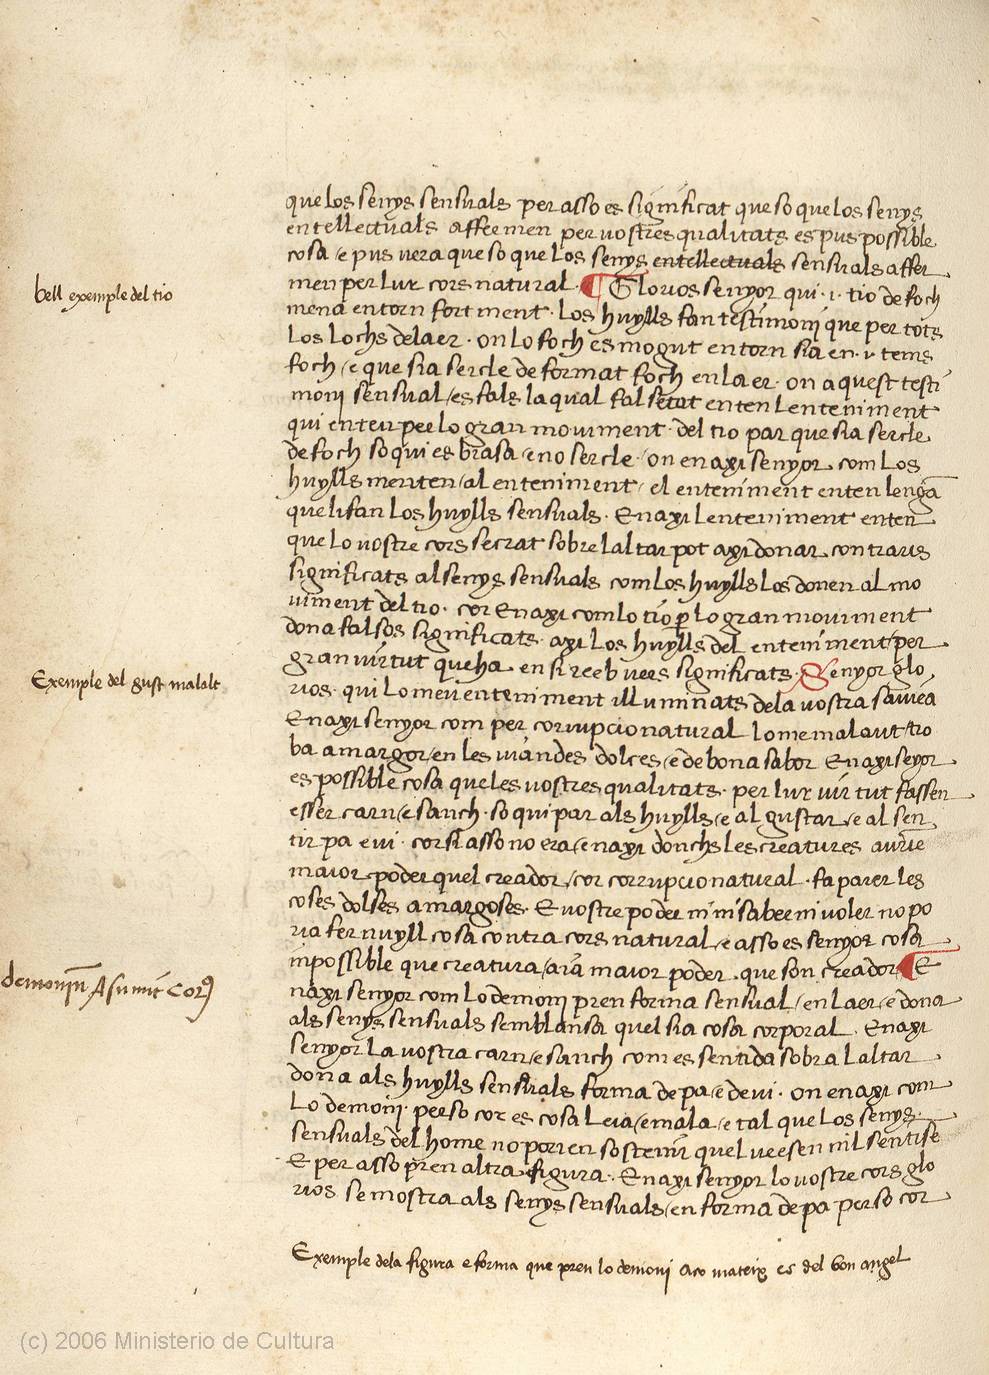 que los senys sensuals per asso es significat que so que los senys
entellectuals affermen per vostres qualitats es pus possible
cosa / e pus vera que so que los senys entellectuals sensuals affer
men per lur cors natural · ¶ Glorios senyor qui · i · tio de foch
bell exemple del tio
mena entorn fortment · Los huylls fan testimoni que per tots
los lochs delaer · on lo foch es mogut entorn sia en · i · tems
foch / e que sia sercle de format foch en laer · on aquest testi
moni sensual / es fals la qual falsetat enten lenteniment
qui enten per lo gran moviment · del tio par que sia sercle
de foch so qui es brasa / e no sercle · on en axi senyor com los
huylls menten / al enteniment / el enteniment enten lengã
que li fan los huylls sensuals · En axi lenteniment enten
que lo vostre cors secrat sobre laltar pot axi donar contraris
significats als senys sensuals com los huylls los donen al mo
viment del tio · cor En axi com lo tio p̲ lo gran moviment
dona falsos significats · axi los huylls del enteniment / per
gran virtut que ha en si reeb vers significats · Senyor glo
Exemple del gust malalt
rios · qui lo meu enteniment illuminats dela vostra saviea
En axi senyor com per corrupcio natural lome malaut tro
ba amargor / en les viandes dolces / e de bona sabor En axi seyor
es possible cosa que les vostres qualitats · per lur virtut fassen
esser carn / e sanch · so qui par als huylls / e al gustar / e al sen
tir pa e vi · cor si asso no era / en axi donchs les creatures aurie
maior poder quel creador / cor corrupcio natural · fa parer les
coses dolses amargoses · E vostre poder ni ni saber ni voler no po
ria fer nuyll cosa contra cors natural / e asso es senyor cosa
inpossible que creatura / aia maior poder · que son creador ¶ E
demoniũ Asumit Corꝰ
naxi senyor com lo demoni pren forma sensual / en laer / e dona
als senys sensuals semblansa quel sia cosa corporal · En axi
senyor la vostra carn / e sanch com es sentida sobra laltar
dona als huylls sensuals forma de pa / e de vi · on en axi com
lo demoni · per so cor es cosa leia / e mala / e tal que los senys
sensuals del home no porien sostenir quel veesen nil sentise
E per asso pren altra figura · En axi senyor lo vostre cors glo
rios se mostra als senys sensuals / en forma de pa per so cor
Exemple dela figura e forma que pren lo demoni Aco mateix es del bon angel
(c) 2006 Ministerio de Cultura